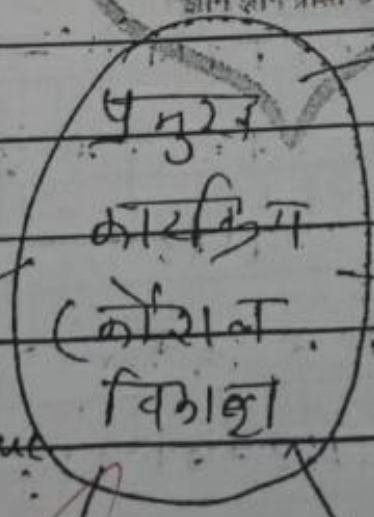 प्रमुख
कार्यक्रम
(कौशल
विकास